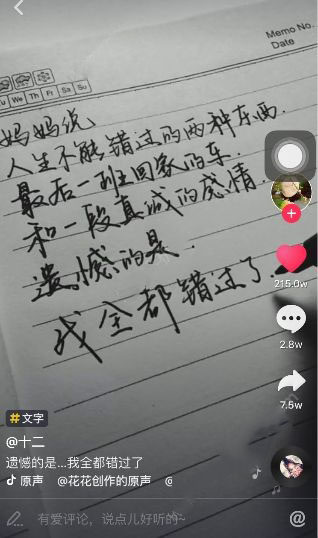 Memo No.
Date
We Th Fr Sa Su
妈妈说
人生不能错过的两种东西.
最后一班回家的车.
和一段真诚的感情.
遗憾的是.
我全都错过了
215.0w
2.8w
7.5w
#文字
@十二
遗憾的是...我全都错过了
原声 @花花创作的原声
有爱评论，说点儿好听的~
@